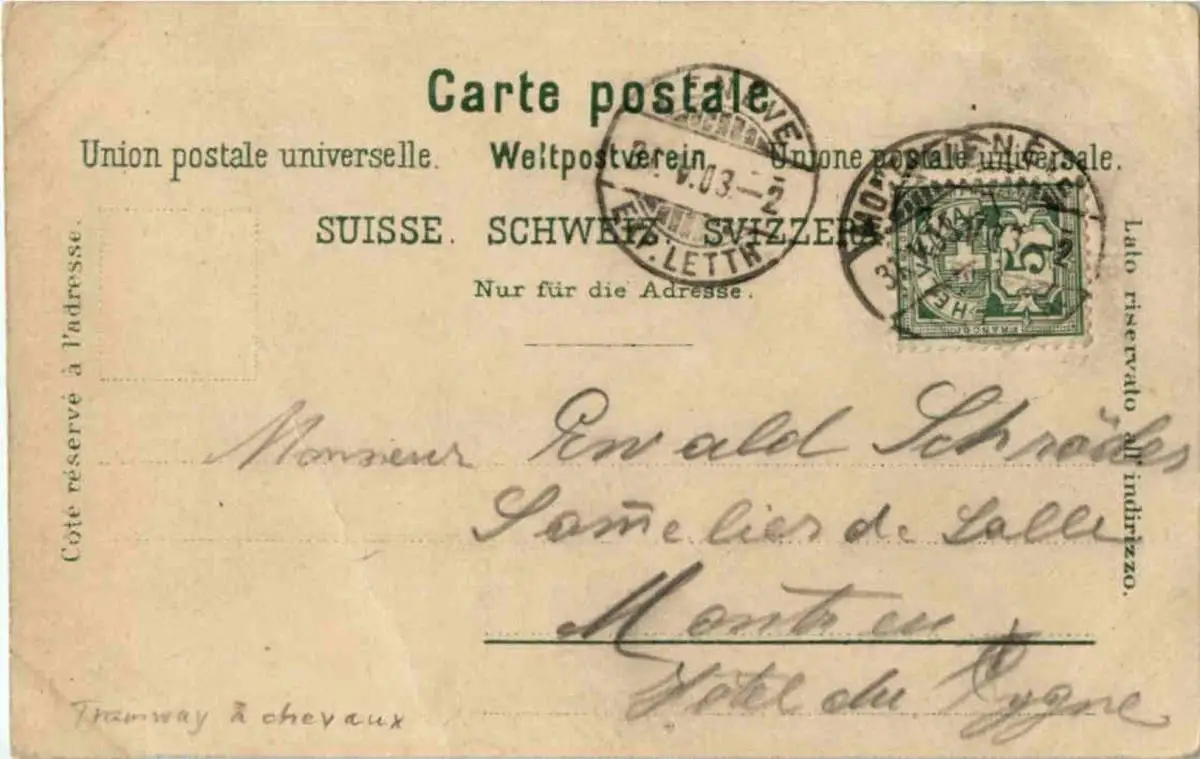 Carte postale
Union postale universelle. Weltpostverein. Unione postale universale.
SUISSE. SCHWEIZ. SVIZZERA.
Nur für die Adresse.
Côté réservé à l'adresse.
Lato riservato all'indirizzo.
EX. LETTR.
V.03.-2
FRANCO
5
Monsieur Ewald Schröder
Som̅elier de Salle
Montreu
Hôtel du Cygne
Tramway à chevaux